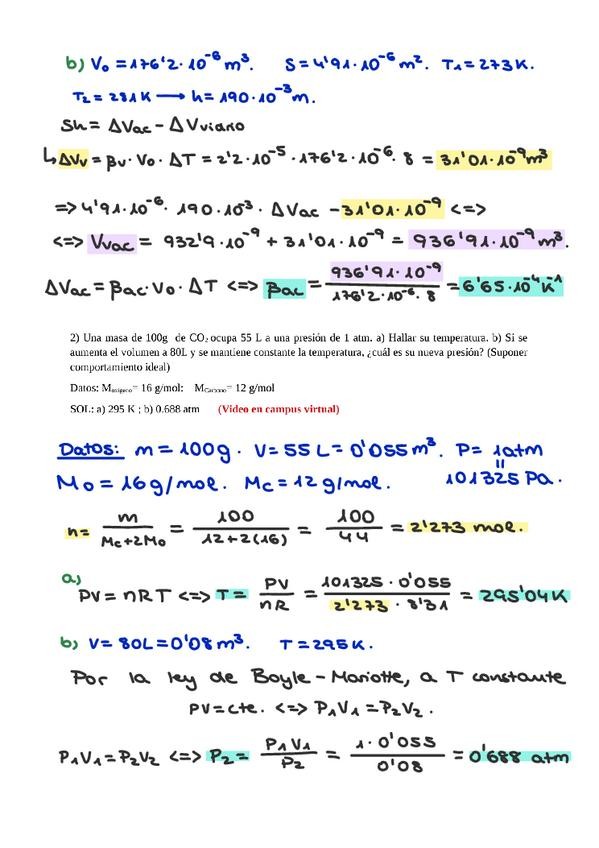 b) V₀ = 176'2·10⁻⁶ m³. S = 4'91·10⁻⁶ m². T₁ = 273K.
T₂ = 281K ⟶ h = 190·10⁻³ m.
Sh = ΔVac - ΔVvidrio
↳ ΔVv = βv·V₀·ΔT = 2'2·10⁻⁵·176'2·10⁻⁶·8 = 31'01·10⁻⁹ m³
=> 4'91·10⁻⁶·190·10⁻³·ΔVac - 31'01·10⁻⁹ <=>
<=> Vvac = 932'9·10⁻⁹ + 31'01·10⁻⁹ = 936'91·10⁻⁹ m³.
ΔVac = βac·V₀·ΔT <=> βac = 936'91·10⁻⁹ / 176'2·10⁻⁶·8 = 6'65·10⁻⁴ K⁻¹
2) Una masa de 100g de CO₂ ocupa 55 L a una presión de 1 atm. a) Hallar su temperatura. b) Si se
aumenta el volumen a 80L y se mantiene constante la temperatura, ¿cuál es su nueva presión? (Suponer
comportamiento ideal)
Datos: Moxígeno= 16 g/mol: MCarbono= 12 g/mol
SOL: a) 295 K ; b) 0.688 atm (Video en campus virtual)
Datos: m = 100g. V = 55L = 0'055 m³. P = 1atm
Mo = 16g/mol. Mc = 12g/mol. 101325 Pa.
n = m / Mc+2Mo = 100 / 12+2(16) = 100 / 44 = 2'273 mol.
a)
PV = nRT <=> T = PV / nR = 101325·0'055 / 2'273·8'31 = 295'04K
b) V = 80L = 0'08 m³. T = 295K.
Por la ley de Boyle-Mariotte, a T constante
PV = cte. <=> P₁V₁ = P₂V₂.
P₁V₁ = P₂V₂ <=> P₂ = P₁V₁ / P₂ = 1·0'055 / 0'08 = 0'688 atm